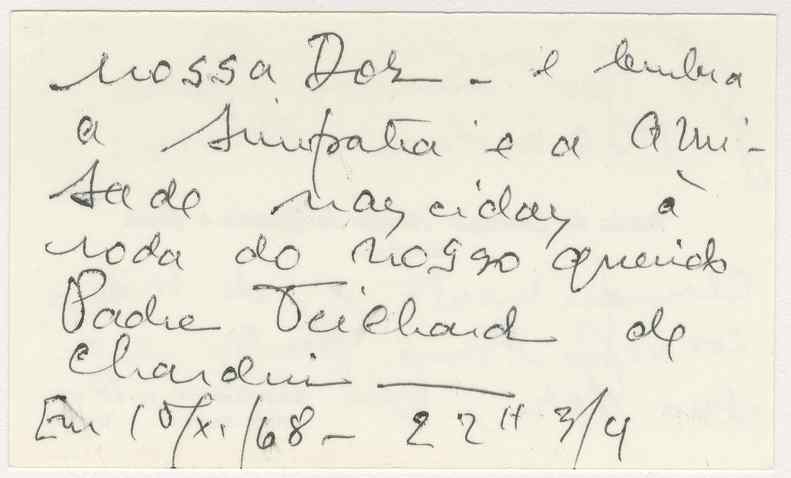 nossa Dor - e lembra
a simpatia e a Ami-
sade nascidas à
roda do nosso querido
Padre Teilhard de
Chardin —
Em 10/XI/68 - 22H 3/4